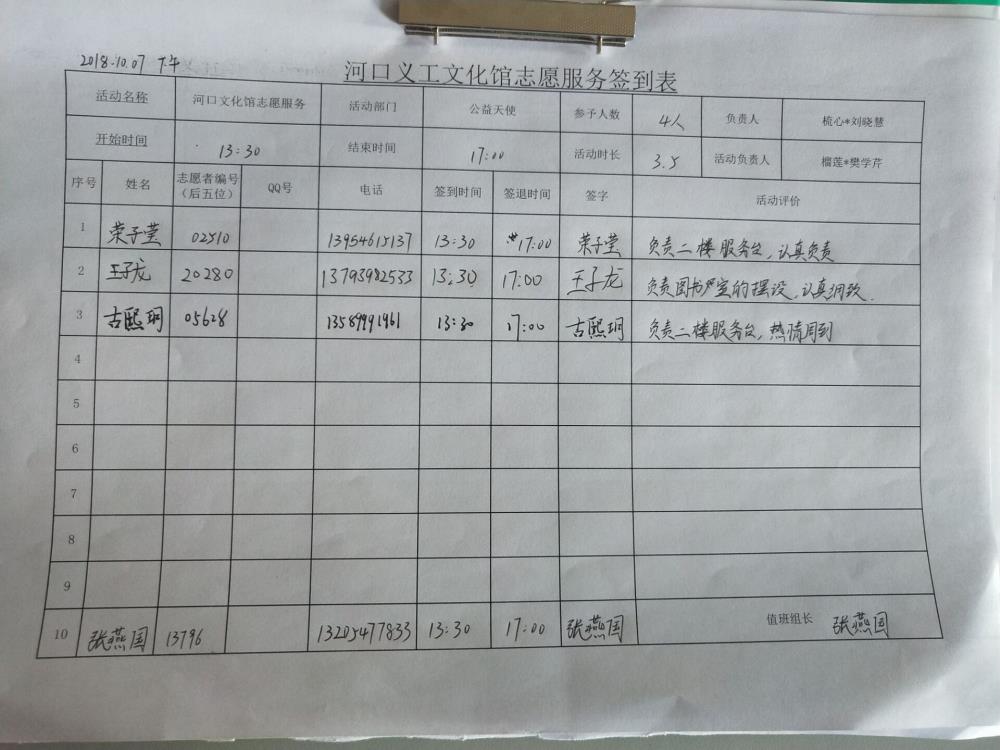 2018.10.07 下午
河口义工文化馆志愿服务签到表
活动名称 河口文化馆志愿服务 活动部门 公益天使 参予人数 4人 负责人 梳心*刘晓慧
开始时间 13:30 结束时间 17:00 活动时长 3.5 活动负责人 榴莲*樊学芹
序号 姓名 志愿者编号（后五位） QQ号 电话 签到时间 签退时间 签字 活动评价
1 荣子莹 02510 13954615137 13:30 17:00 荣子莹 负责二楼服务台，认真负责
2 王子龙 20280 13793982533 13:30 17:00 王子龙 负责图书室的摆设，认真细致.
3 古熙珃 05628 13589991961 13:30 17:00 古熙珃 负责二楼服务台，热情周到
4
5
6
7
8
9
10 张燕国 13796 13205477833 13:30 17:00 张燕国 值班组长 张燕国